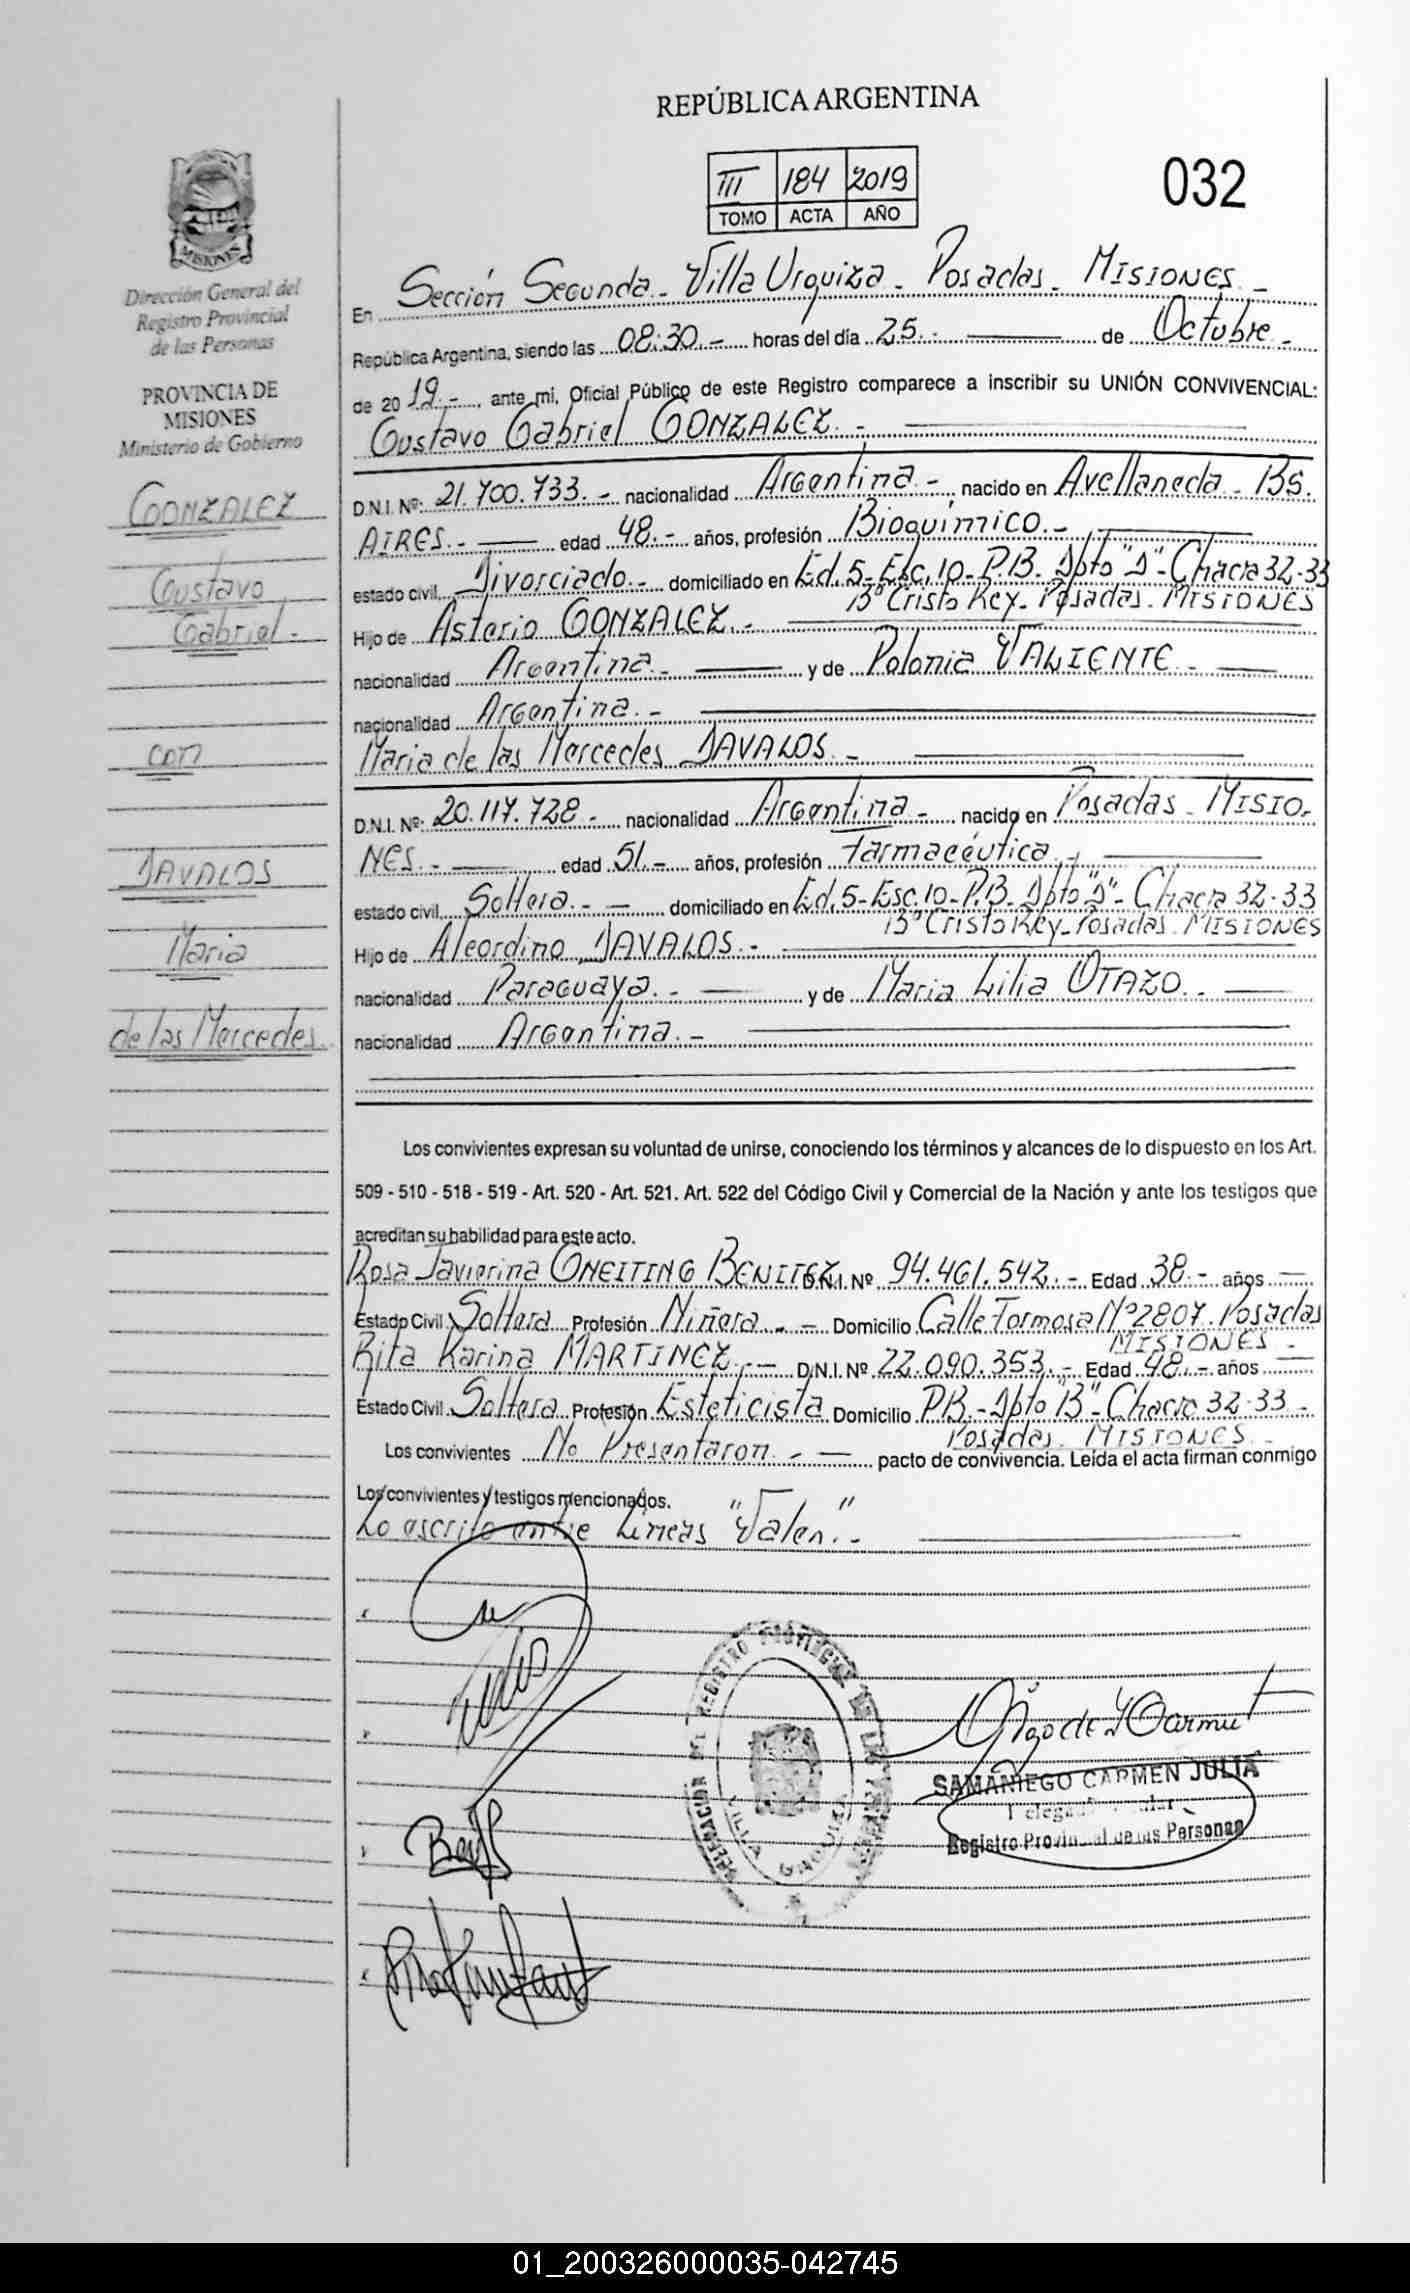 REPÚBLICA ARGENTINA
III 184 2019
TOMO ACTA AÑO
032
MISIONES
Dirección General del
Registro Provincial
de las Personas
PROVINCIA DE
MISIONES
Ministerio de Gobierno
GONZALEZ
Gustavo
Gabriel.-
con
DAVALOS
Maria
de las Mercedes.
En Sección Segunda - Villa Urquiza - Posadas - MISIONES.-
República Argentina, siendo las 08:30.- horas del día 25.- de Octubre.-
de 2019.-, ante mi, Oficial Público de este Registro comparece a inscribir su UNIÓN CONVIVENCIAL:
Gustavo Gabriel GONZALEZ.-
D.N.I. Nº: 21.700.733.- nacionalidad Argentina.-, nacido en Avellaneda - BS.
AIRES.- edad 48.- años, profesión Bioquímico.-
estado civil Divorciado.- domiciliado en Ed. 5 - Esc. 10 - P.B. Dpto "D" - Chacra 32-33
Bº Cristo Rey - Posadas - MISIONES
Hijo de Asterio GONZALEZ.-
nacionalidad Argentina.- y de Polonia VALIENTE.-
nacionalidad Argentina.-
Maria de las Mercedes DAVALOS.-
D.N.I. Nº: 20.117.728.- nacionalidad Argentina.- nacido en Posadas - MISIO-
NES.- edad 51.- años, profesión Farmacéutica.-
estado civil Soltera.- domiciliado en Ed. 5 - Esc. 10 - P.B. Dpto "D" - Chacra 32-33
Bº Cristo Rey - Posadas - MISIONES
Hijo de DAVALOS.-
nacionalidad Paraguaya.- y de Maria Lilia OTAZO.-
nacionalidad Argentina.-
Los convivientes expresan su voluntad de unirse, conociendo los términos y alcances de lo dispuesto en los Art.
509 - 510 - 518 - 519 - Art. 520 - Art. 521. Art. 522 del Código Civil y Comercial de la Nación y ante los testigos que
acreditan su habilidad para este acto.
Rosa Javierina BENITEZ D.N.I. Nº 94.461.542.- Edad 38.- años
Estado Civil Soltera Profesión Niñera.- Domicilio Calle Formosa Nº 2807. Posadas
MISIONES.-
Rita Karina MARTINEZ.- D.N.I. Nº 22.090.353.- Edad 48.- años
Estado Civil Soltera Profesión Esteticista Domicilio PB.- Dpto "B" - Chacra 32-33 -
Posadas - MISIONES.-
Los convivientes No Presentaron.- pacto de convivencia. Leída el acta firman conmigo
Los convivientes y testigos mencionados.
Lo escrito entre Líneas "Valen".-
DELEGACION DEL REGISTRO PROVINCIAL DE LAS PERSONAS
VILLA URQUIZA
SAMANIEGO CARMEN JULIA
Registro Provincial de las Personas
01_200326000035-042745